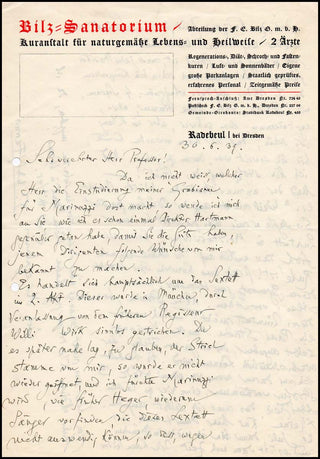 Bilz=Sanatorium / Abteilung der F. E. Bilz G. m. b. H.
Kuranstalt für naturgemäße Lebens- und Heilweise / 2 Ärzte
Regenerations-, Diät-, Schroth- und Fasten-
kuren / Luft- und Sonnenbäder / Eigene
große Parkanlagen / Staatlich geprüftes,
erfahrenes Personal / Zeitgemäße Preise
Fernsprech-Anschluß: Amt Dresden Nr.
Postscheck F. E. Bilz G. m. b. H., Dresden Nr.
Gemeinde-Girokonto: Stadtbank Radebeul Nr.
Radebeul / bei Dresden
30.6.39.
Sehr verehrter Herr Professor!
Da ich nicht weiss, welcher
Herr die Einstudierung meiner
für Marinuzzi dort macht so wende ich mich
an Sie wie ich es schon einmal Direktor Hartmann
gegenüber getan habe, damit Sie die Güte haben,
jenem Dirigenten folgende Wünsche von mir
bekannt zu machen.
Es handelt sich hauptsächlich um das Sextett
im 2. Akt. Dieser wurde in München, durch
Veranlassung von dem früheren Regisseur
Willi Wirk sinnlos gestrichen. Da
es später nahe lag, zu glauben, der Strich
stamme von mir, so wurde er nicht
wieder geöffnet, und ich fürchte Marinuzzi
wird, wie früher Heger, wiederum
Sänger vorfinden die dieses Sextett
nicht auswendig können, so dass, wegen